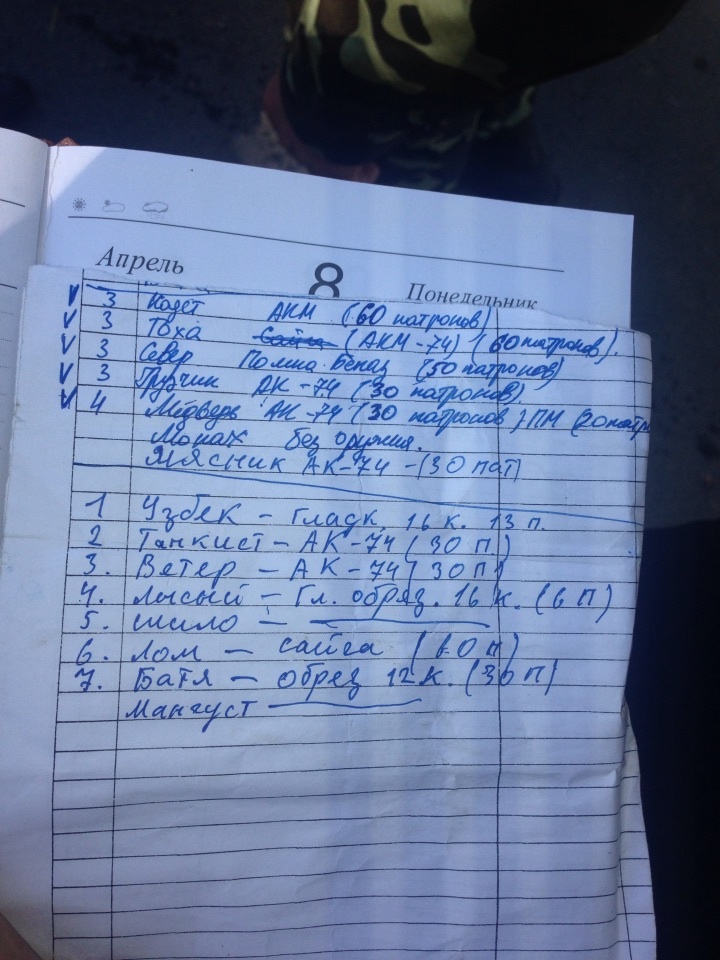 Апрель 8 Понедельник
V 3 Кадет АКМ (60 патронов)
V 3 Тоха Сайга (АКМ-74) (60 патронов).
V 3 Север (50 патронов)
V 3 Грузчик АК-74 (30 патронов).
V 4 Мідведь АК-74 (30 патронов) ПМ (20 патр
Монах без оружия.
Мясник АК-74 - (30 пат)
1 Узбек - гладк. 16 к. 13 п.
2 Танкист - АК-74 (30 П.)
3. Ветер - АК-74 (30 П)
4. Лысый - Гл. обрез. 16 к. (6 П)
5. шило -
6. Лом - сайга ( 0 п)
7. Батя - обрез 12 к. (30 п)
Мангуст